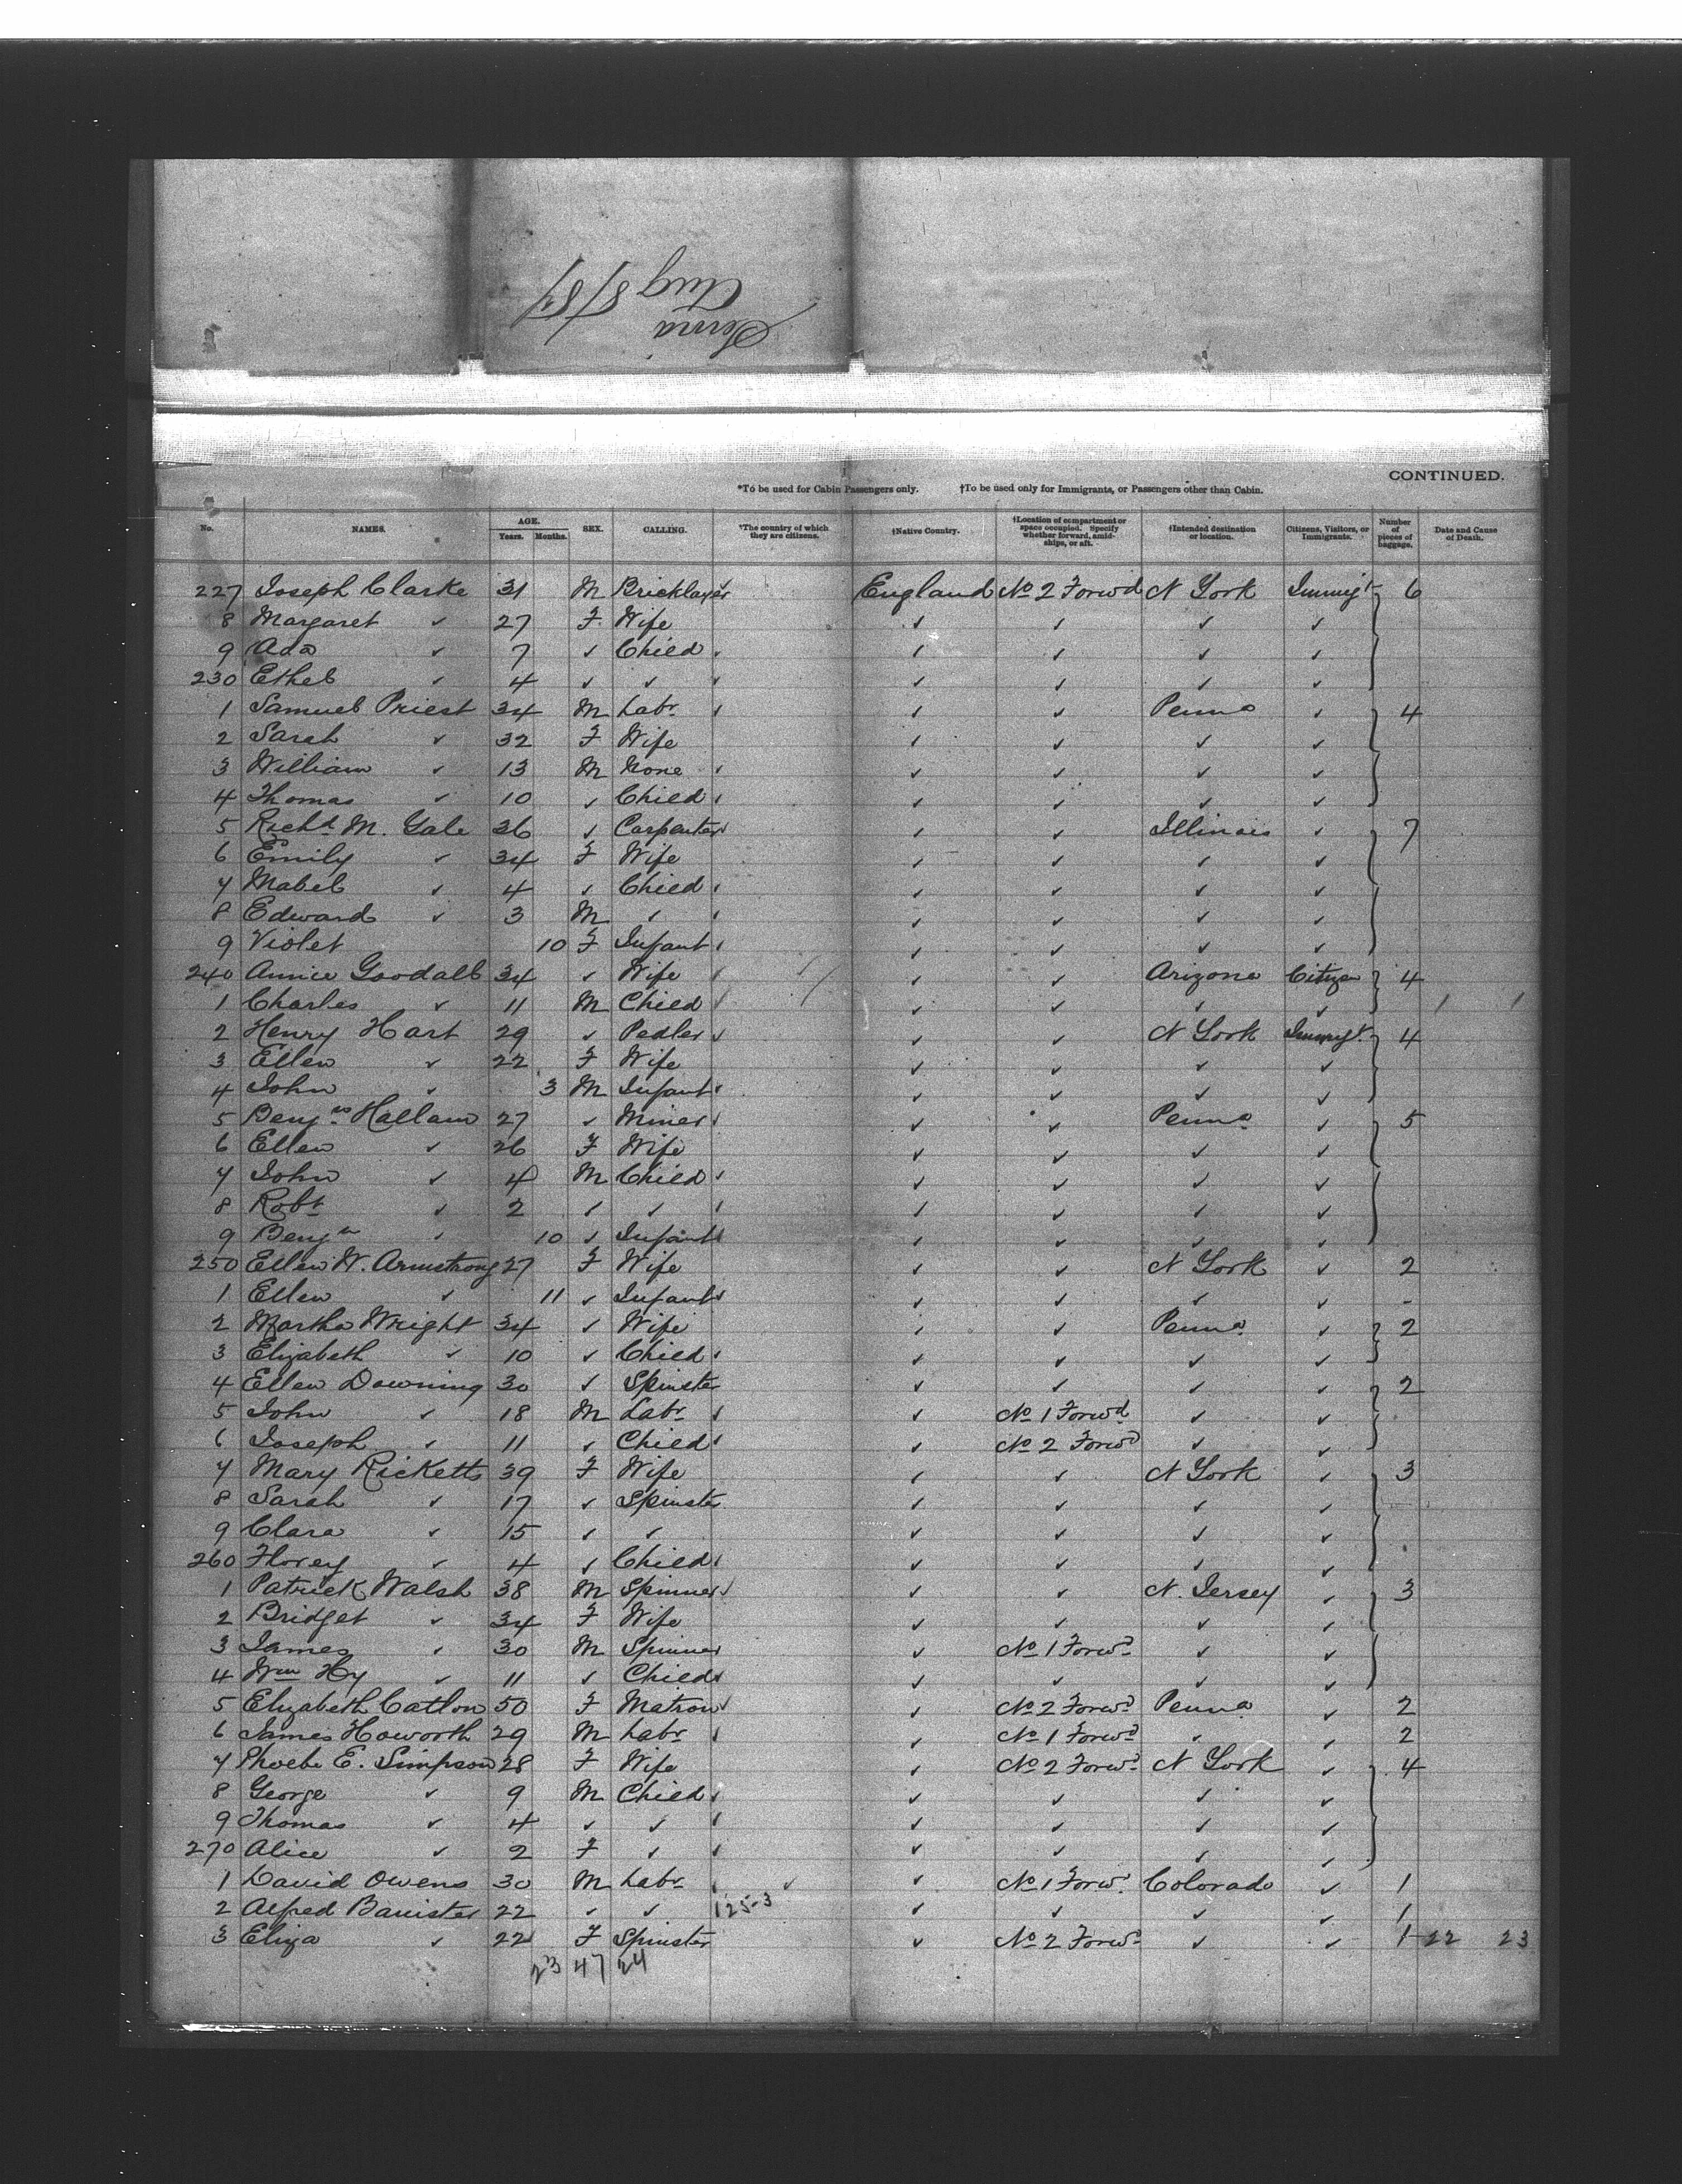 Servia
Aug 8/87
CONTINUED.
*To be used for Cabin Passengers only. †To be used only for Immigrants, or Passengers other than Cabin.
No. NAMES. AGE. Years. Months. SEX. CALLING. *The country of which they are citizens. †Native Country. †Location of compartment or space occupied. Specify whether forward, amidships, or aft. †Intended destination or location. Citizens, Visitors, or Immigrants. Number of pieces of baggage. Date and Cause of Death.
227 Joseph Clarke 31 M Bricklayer England No 2 Forwd N York Immigt 6
8 Margaret ✓ 27 F Wife ✓ ✓ ✓ ✓
9 Ada ✓ 7 ✓ Child ✓ ✓ ✓ ✓
230 Ethel ✓ 4 ✓ ✓ ✓ ✓ ✓ ✓
1 Samuel Priest 34 M Labr ✓ ✓ Penna ✓ 4
2 Sarah ✓ 32 F Wife ✓ ✓ ✓ ✓
3 William ✓ 13 M None ✓ ✓ ✓ ✓
4 Thomas ✓ 10 ✓ Child ✓ ✓ ✓ ✓
5 Richd M. Gale 36 ✓ Carpenter ✓ ✓ Illinois ✓ 7
6 Emily ✓ 34 F Wife ✓ ✓ ✓ ✓
7 Mabel ✓ 4 ✓ Child ✓ ✓ ✓ ✓
8 Edward ✓ 3 M ✓ ✓ ✓ ✓ ✓
9 Violet 10 F Infant ✓ ✓ ✓ ✓
240 Annie Goodall 34 ✓ Wife ✓ ✓ Arizona Citizen 4
1 Charles ✓ 11 M Child ✓ ✓ ✓ ✓
2 Henry Hart 29 ✓ Pedler ✓ ✓ N York Immigt 4
3 Ellen ✓ 22 F Wife ✓ ✓ ✓ ✓
4 John ✓ 3 M Infant ✓ ✓ ✓ ✓
5 Benjn Hallam 27 ✓ Miner ✓ ✓ Penna ✓ 5
6 Ellen ✓ 26 F Wife ✓ ✓ ✓ ✓
7 John ✓ 4 M Child ✓ ✓ ✓ ✓
8 Robt ✓ 2 ✓ ✓ ✓ ✓ ✓ ✓
9 Benjn ✓ 10 ✓ Infant ✓ ✓ ✓ ✓
250 Ellen W. Armstrong 27 F Wife ✓ ✓ N York ✓ 2
1 Ellen ✓ 11 ✓ Infant ✓ ✓ ✓ ✓
2 Martha Wright 34 ✓ Wife ✓ ✓ Penna ✓ 2
3 Elizabeth ✓ 10 ✓ Child ✓ ✓ ✓ ✓
4 Ellen Downing 30 ✓ Spinster ✓ ✓ ✓ ✓ 2
5 John ✓ 18 M Labr ✓ No 1 Forwd ✓ ✓
6 Joseph ✓ 11 ✓ Child ✓ No 2 Forwd ✓ ✓
7 Mary Ricketts 39 F Wife ✓ ✓ N York ✓ 3
8 Sarah ✓ 17 ✓ Spinster ✓ ✓ ✓ ✓
9 Clara ✓ 15 ✓ ✓ ✓ ✓ ✓ ✓
260 Florey ✓ 4 ✓ Child ✓ ✓ ✓ ✓
1 Patrick Walsh 38 M Spinner ✓ ✓ N. Jersey ✓ 3
2 Bridget ✓ 34 F Wife ✓ ✓ ✓ ✓
3 James ✓ 30 M Spinner ✓ No 1 Forwd ✓ ✓
4 Wm Hy ✓ 11 ✓ Child ✓ ✓ ✓ ✓
5 Elizabeth Catlow 50 F Matron ✓ No 2 Forwd Penna ✓ 2
6 James Howorth 29 M Labr ✓ No 1 Forwd ✓ ✓ 2
7 Phoebe E. Simpson 28 F Wife ✓ No 2 Forwd N York ✓ 4
8 George ✓ 9 M Child ✓ ✓ ✓ ✓
9 Thomas ✓ 4 ✓ ✓ ✓ ✓ ✓ ✓
270 Alice ✓ 2 F ✓ ✓ ✓ ✓ ✓
1 David Owens 30 M Labr ✓ ✓ No 1 Forwd Colorado ✓ 1
2 Alfred Banister 22 ✓ ✓ 125-3 ✓ ✓ ✓ ✓ 1
3 Eliza ✓ 22 F Spinster ✓ No 2 Forwd ✓ ✓ 1 22 23
23 47 24